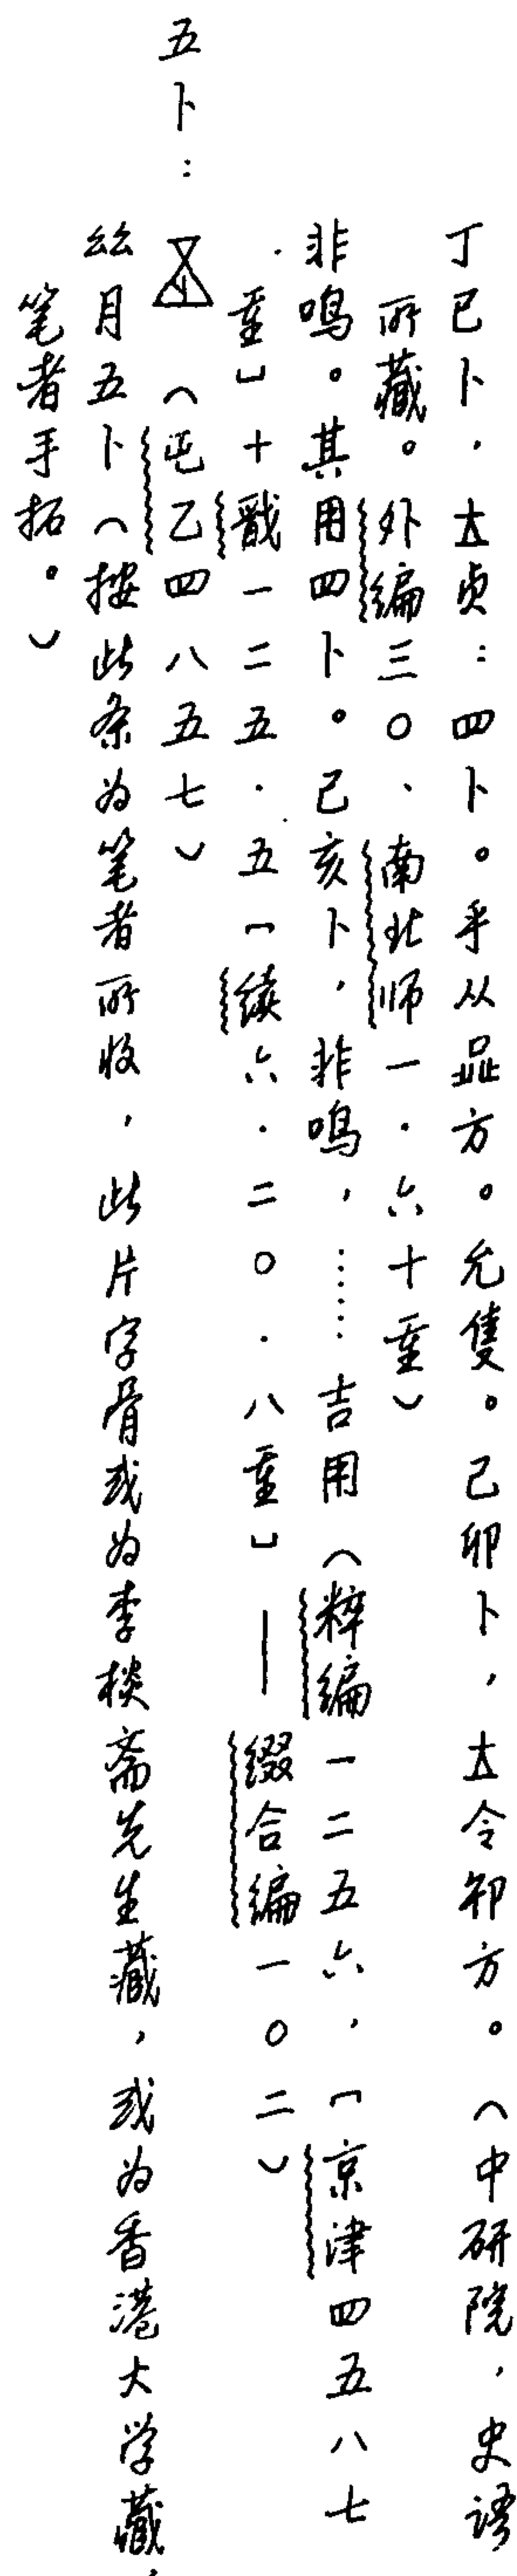 丁巳卜，贞：四卜。乎从方。允隻。己卯卜，令卬方。（中研院，史语
所藏。外编三〇、南北师一·六十重）
非鸣。其用四卜。己亥卜，非鸣，……吉用（粹编一二五六，〔京津四五八七
重〕十戬一二五·五〔续六·二〇·八重〕——缀合编一〇二）
五卜：（屯乙四八五七）
丝月五卜（按此条为笔者所收，此片字骨或为李棪斋先生藏，或为香港大学藏，
笔者手拓。）